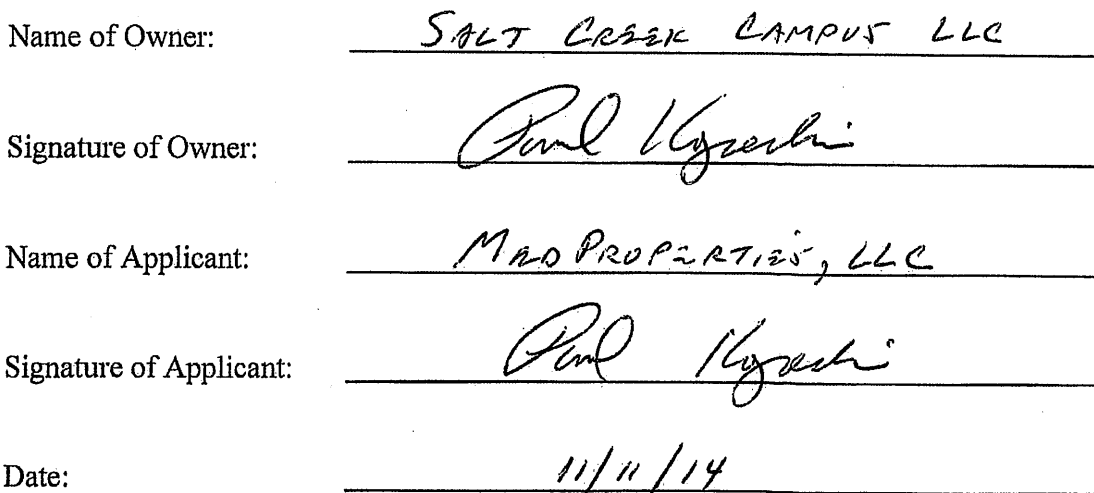 Name of Owner: SALT CREEK CAMPUS LLC
Signature of Owner: Paul
Name of Applicant: MED PROPERTIES, LLC
Signature of Applicant: Paul
Date: 11/11/14